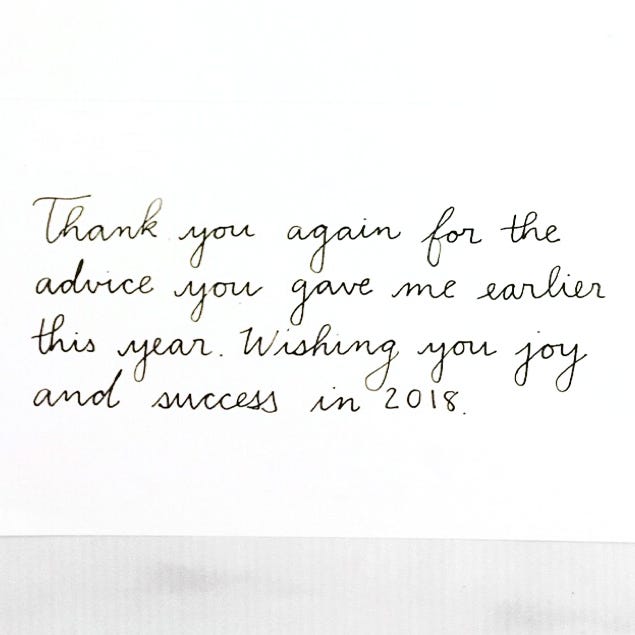 Thank you again for the
advice you gave me earlier
this year. Wishing you joy
and success in 2018.